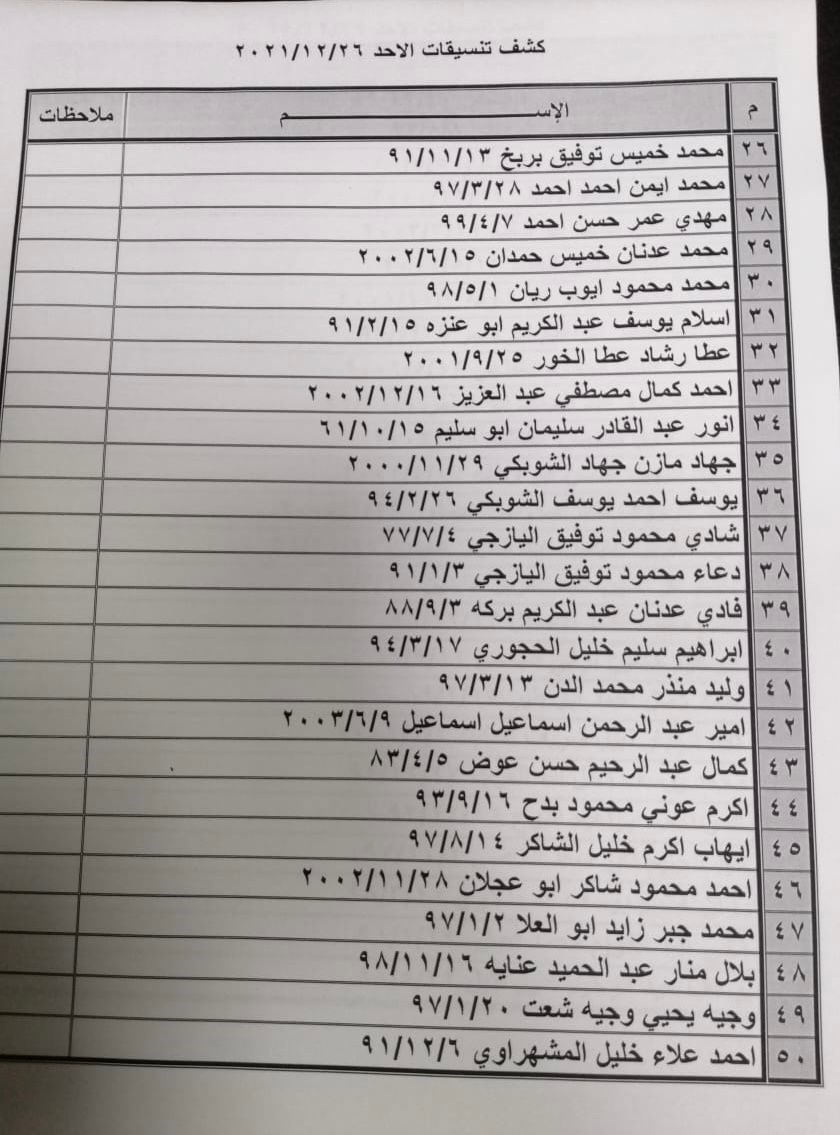 كشف تنسيقات الاحد ٢٠٢١/١٢/٢٦
م الإســــــــم ملاحظات
٢٦ محمد خميس توفيق بربخ ٩١/١١/١٣
٢٧ محمد ايمن احمد احمد ٩٧/٣/٢٨
٢٨ مهدي عمر حسن احمد ٩٩/٤/٧
٢٩ محمد عدنان خميس حمدان ٢٠٠٢/٦/١٥
٣٠ محمد محمود ايوب ريان ٩٨/٥/١
٣١ اسلام يوسف عبد الكريم ابو عنزه ٩١/٢/١٥
٣٢ عطا رشاد عطا الخور ٢٠٠١/٩/٢٥
٣٣ احمد كمال مصطفي عبد العزيز ٢٠٠٢/١٢/١٦
٣٤ انور عبد القادر سليمان ابو سليم ٦١/١٠/١٥
٣٥ جهاد مازن جهاد الشوبكي ٢٠٠٠/١١/٢٩
٣٦ يوسف احمد يوسف الشوبكي ٩٤/٢/٢٦
٣٧ شادي محمود توفيق اليازجي ٧٧/٧/٤
٣٨ دعاء محمود توفيق اليازجي ٩١/١/٣
٣٩ فادي عدنان عبد الكريم بركه ٨٨/٩/٣
٤٠ ابراهيم سليم خليل الحجوري ٩٤/٣/١٧
٤١ وليد منذر محمد الدن ٩٧/٣/١٣
٤٢ امير عبد الرحمن اسماعيل اسماعيل ٢٠٠٣/٦/٩
٤٣ كمال عبد الرحيم حسن عوض ٨٣/٤/٥
٤٤ اكرم عوني محمود بدح ٩٣/٩/١٦
٤٥ ايهاب اكرم خليل الشاكر ٩٧/٨/١٤
٤٦ احمد محمود شاكر ابو عجلان ٢٠٠٢/١١/٢٨
٤٧ محمد جبر زايد ابو العلا ٩٧/١/٢
٤٨ بلال منار عبد الحميد عنايه ٩٨/١١/١٦
٤٩ وجيه يحيي وجيه شعت ٩٧/١/٢٠
٥٠ احمد علاء خليل المشهراوي ٩١/١٢/٦